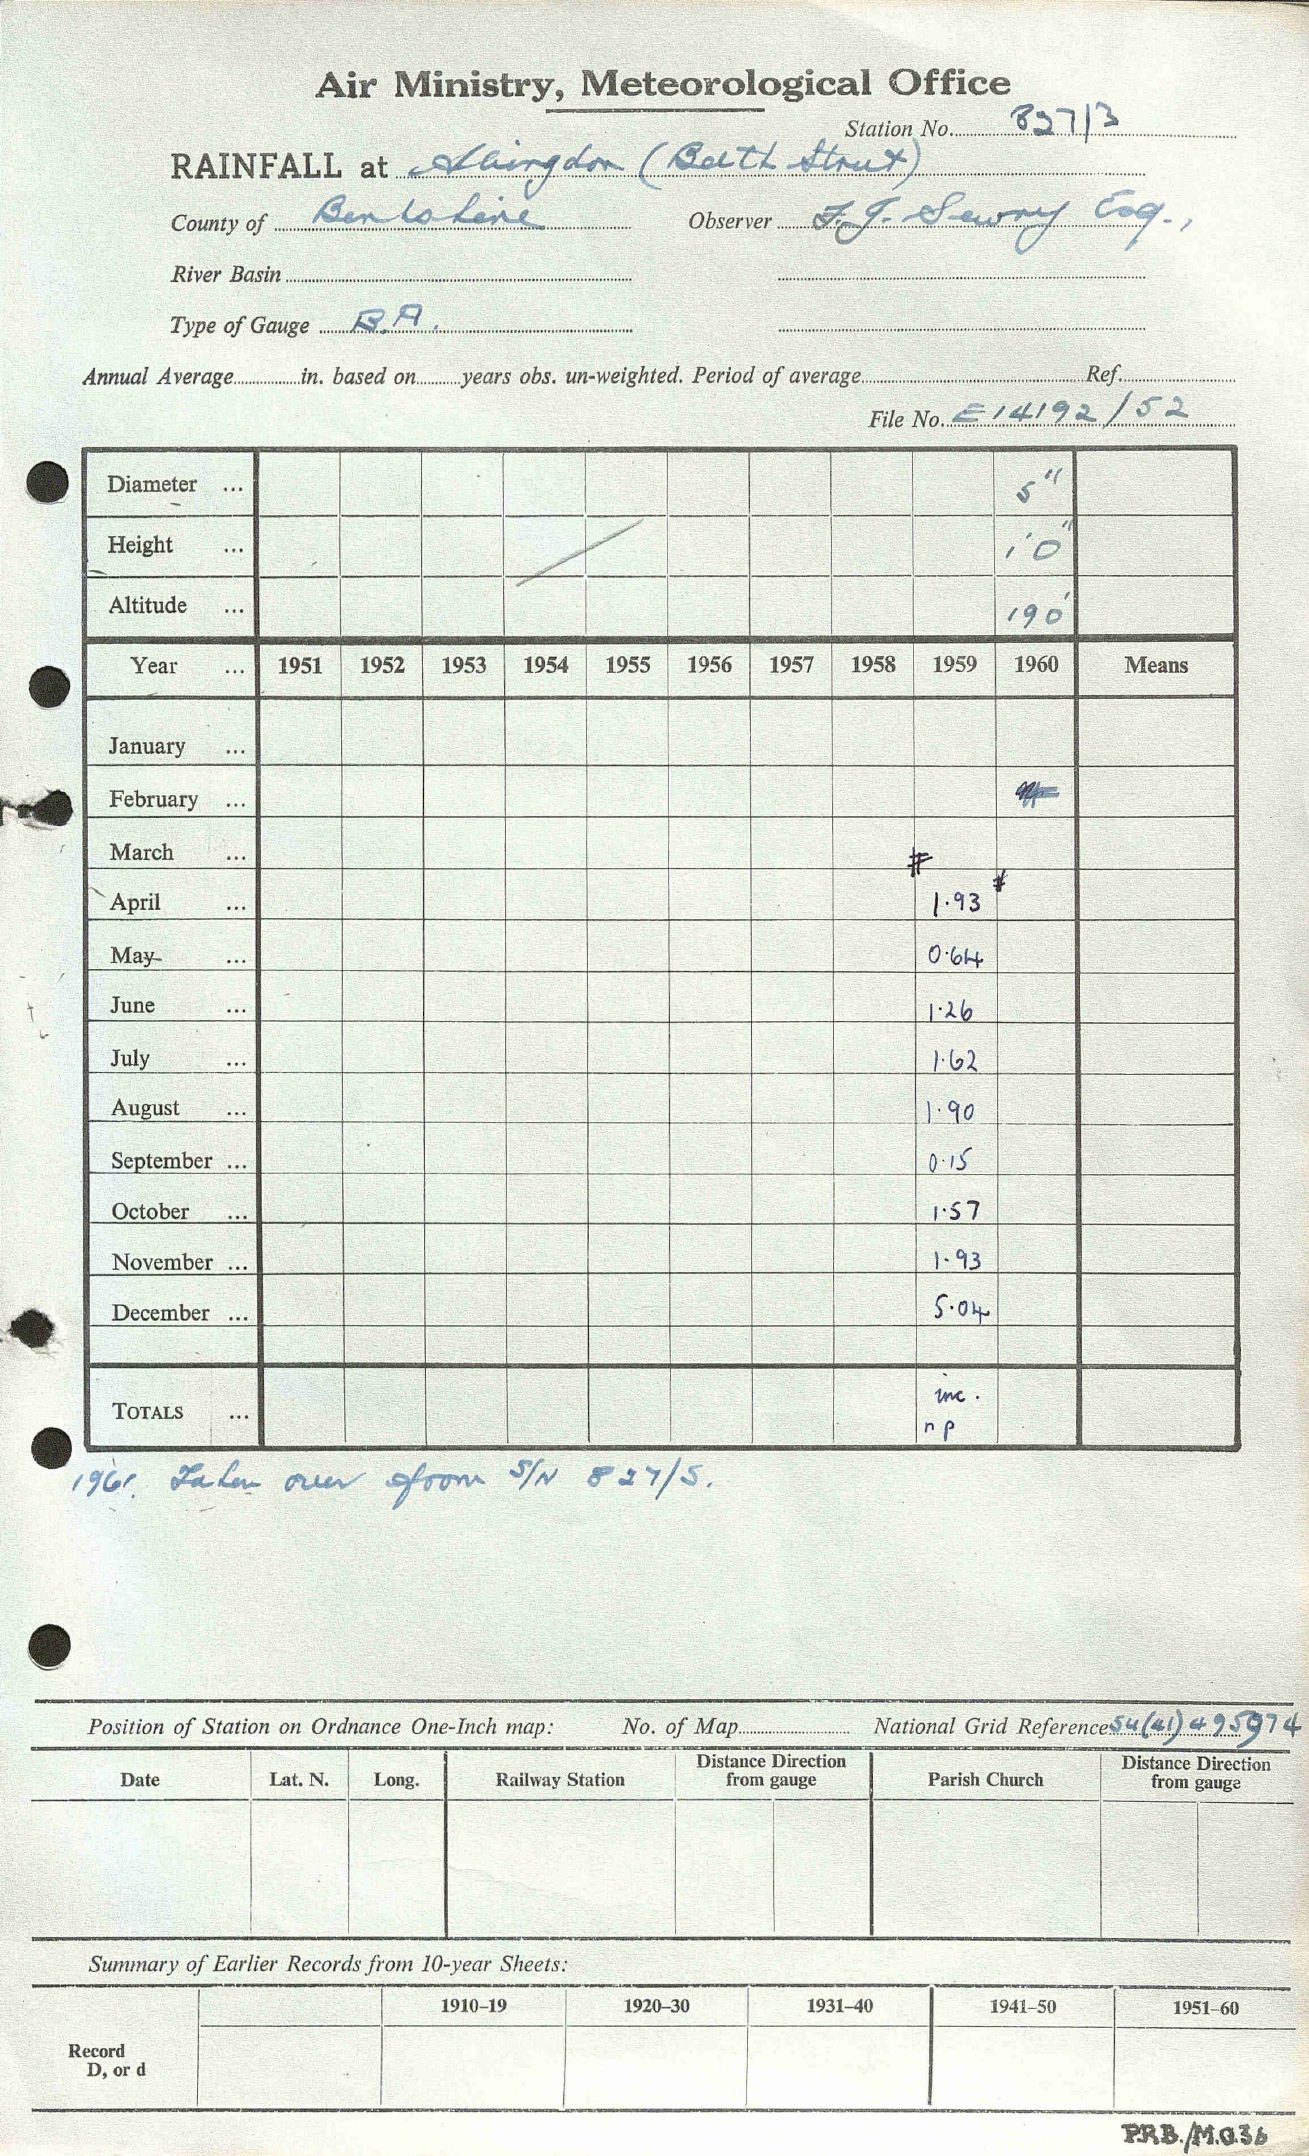 Air Ministry, Meteorological Office
Station No. 827/3
RAINFALL at Abingdon (Bath Street)
County of Berkshire Observer F.J. Sewry Esq.,
River Basin
Type of Gauge B.A.
Annual Average in. based on years obs. un-weighted. Period of average Ref.
File No. E14192/52
Diameter ... 5"
Height ... 1'0"
Altitude ... 190'
Year ... 1951 1952 1953 1954 1955 1956 1957 1958 1959 1960 Means
January ...
February ...
March ... #
April ... 1.93 #
May ... 0.64
June ... 1.26
July ... 1.62
August ... 1.90
September ... 0.15
October ... 1.57
November ... 1.93
December ... 5.04
TOTALS ... inc.
n p
1961. Taken over from S/N 827/5.
Position of Station on Ordnance One-Inch map: No. of Map National Grid Reference SU(41) 495974
Date Lat. N. Long. Railway Station Distance Direction from gauge Parish Church Distance Direction from gauge
Summary of Earlier Records from 10-year Sheets:
1910–19 1920–30 1931–40 1941–50 1951–60
Record
D, or d
P.R.B./M.O.36